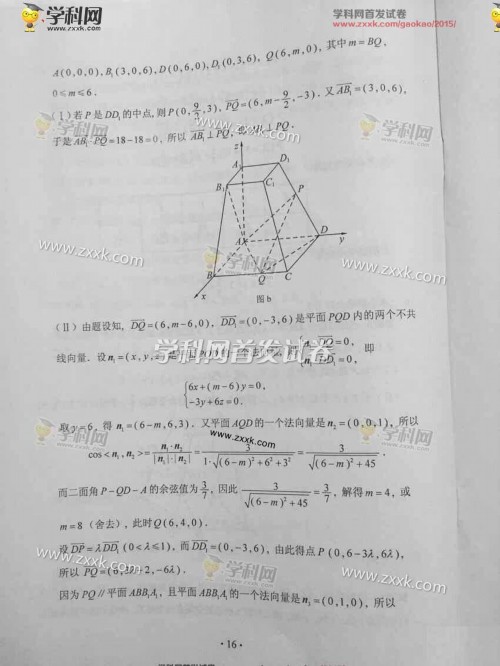 学科网
www.zxxk.com
学科网首发试卷
www.zxxk.com/gaokao/2015/
A(0,0,0), B₁(3,0,6), D(0,6,0), D₁(0,3,6), Q(6,m,0), 其中 m=BQ,
0≤m≤6.
(Ⅰ)若 P 是 DD₁ 的中点, 则 P(0, 9/2, 3), PQ=(6, m-9/2, -3). 又 AB₁=(3,0,6),
于是 AB₁·PQ=18-18=0, 所以 AB₁⊥PQ, 即 AB₁⊥PQ.
z
A₁
D₁
B₁
C₁
P
A
D
y
B
Q
C
x
图 b
(Ⅱ)由题设知, DQ=(6,m-6,0), DD₁=(0,-3,6)是平面 PQD 内的两个不共
线向量. 设 n₁=(x,y,
DQ=0,
DD₁=0,
即
学科网首发试卷
6x+(m-6)y=0,
-3y+6z=0.
取 y=6, 得 n₁=(6-m,6,3). 又平面 AQD 的一个法向量是 n₂=(0,0,1), 所以
cos<n₁,n₂>= n₁·n₂/|n₁|·|n₂| = 3/1·√(6-m)²+6²+3² = 3/√(6-m)²+45.
而二面角 P-QD-A 的余弦值为 3/7, 因此 3/√(6-m)²+45 = 3/7, 解得 m=4, 或
m=8(舍去), 此时 Q(6,4,0).
设 DP=λDD₁(0<λ≤1), 而 DD₁=(0,-3,6), 由此得点 P(0,6-3λ,6λ),
所以 PQ=(6,3λ-2,-6λ).
因为 PQ∥平面 ABB₁A₁, 且平面 ABB₁A₁ 的一个法向量是 n₃=(0,1,0), 所以
·16·